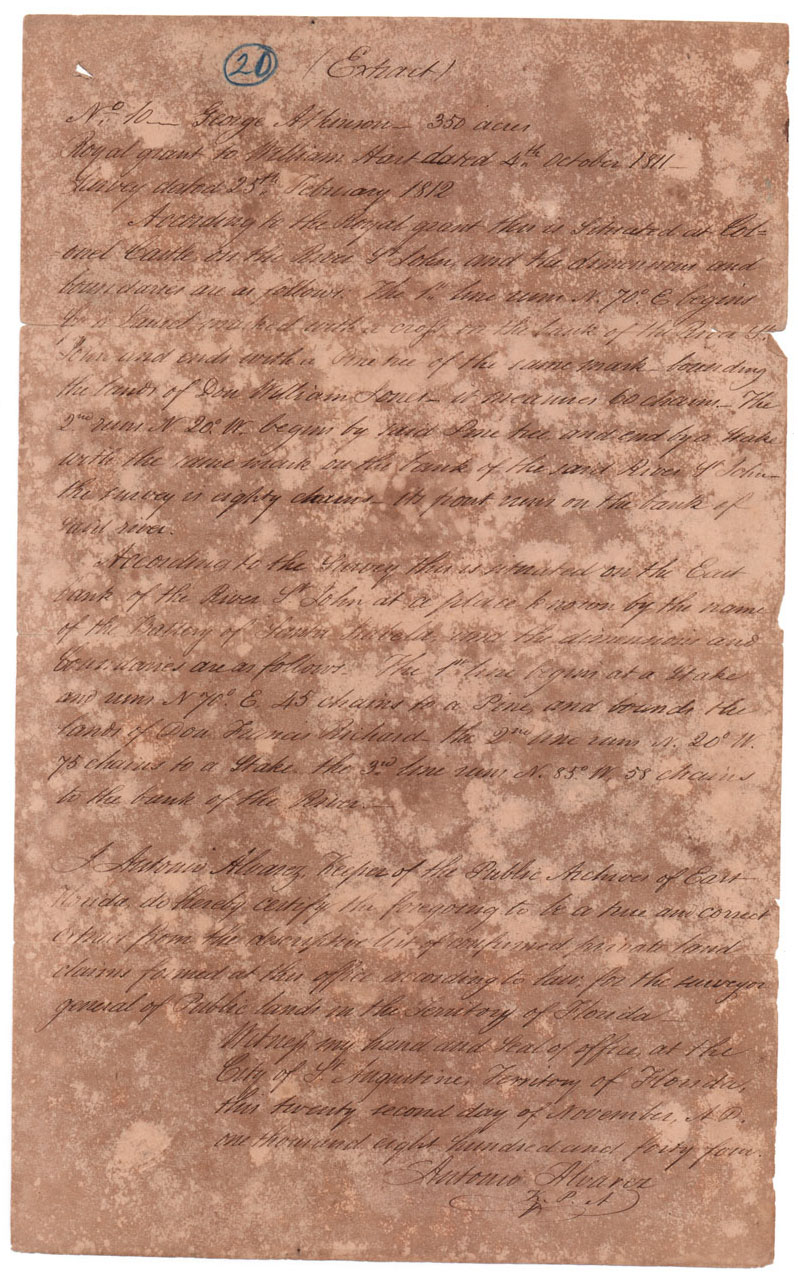 20 (Extract)
No. 10 — George Atkinson — 350 acres
Royal grant to William Hart dated 4th October 1811 —
Survey dated 25th February 1812
According to the Royal grant this is situated at Col=
onel Castle, on the River St John, and the dimensions and
boundaries are as follows. The 1st line runs N. 70° E. begins
by a Laurel marked with a cross on the bank of the River St
John and ends with a Pine tree of the same mark — bounding
the lands of Don William Jones — it measures 60 chains — The
2nd runs N. 20° W. begins by said Pine tree and ends by a Stake
with the same mark on the bank of the said River St John —
the survey is eighty chains — its front runs on the bank of
said river.
According to the Survey this is situated on the East
bank of the River St John at a place known by the name
of the Battery of Santa and the dimensions and
boundaries are as follows — The 1st line begins at a Stake
and runs N 70° E. 45 chains to a Pine, and bounds the
lands of Don Francis Richard — the 2nd line runs N. 20° W.
75 chains to a Stake. the 3rd line runs N. 85° W. 58 chains
to the bank of the River. —
I Antonio Alvarez, Keeper of the Public Archives of East
Florida, do hereby certify the foregoing to be a true and correct
extract from the descriptive list of confirmed private land
claims formed at this office according to law, for the surveyor
general of Public lands in the territory of Florida —
Witness my hand and Seal of office, at the
City of St Augustine, Territory of Florida,
this twenty second day of November, A.D.
one thousand eight hundred and forty four.
Antonio Alvarez
K. P. A